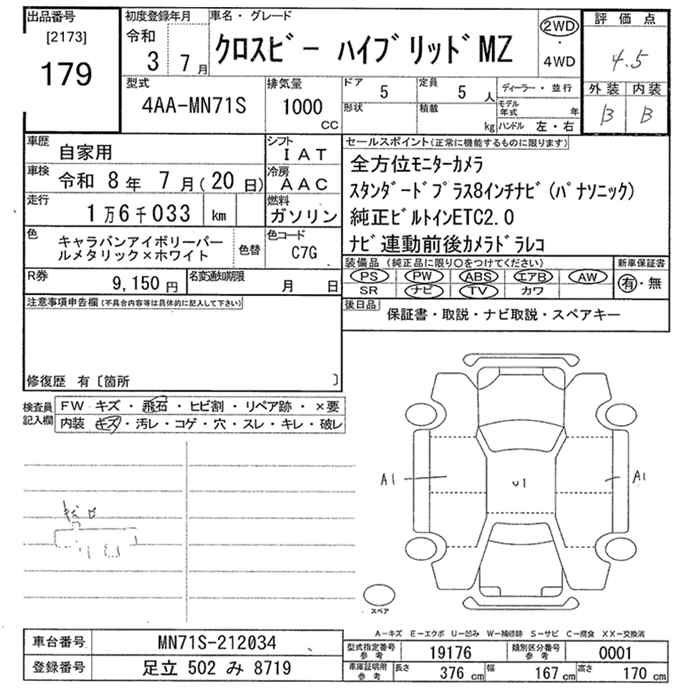 出品番号
[2173]
179
初度登録年月
令和
3 7月
車名・グレード
クロスビー ハイブリッドMZ
2WD
・
4WD
評価点
4.5
外装 内装
B B
型式
4AA-MN71S
排気量
1000
CC
ドア
5
定員
5 人
形状
積載
kg
ディーラー・並行
モデル年式 年
ハンドル 左・右
車歴
自家用
シフト
IAT
車検
令和 8年 7月(20日)
冷房
AAC
走行
1万6千033 km
燃料
ガソリン
色
キャラバンアイボリーパー
ルメタリック×ホワイト
色替
色コード
C7G
R券
9,150円
名変通知期限
月 日
セールスポイント(正常に機能するものに限ります)
全方位モニターカメラ
スタンダードプラス8インチナビ(パナソニック)
純正ビルトインETC2.0
ナビ連動前後カメラドラレコ
装備品(純正品に限り○をつけてください)
PS PW ABS エアB AW
SR ナビ TV カワ
新車保証書
有・無
後日品
保証書・取説・ナビ取説・スペアキー
注意事項申告欄(不具合内容等は具体的に記入して下さい)
修復歴 有〔箇所 〕
検査員
記入欄
FW キズ・飛石・ヒビ割・リペア跡・×要
内装 キズ・汚レ・コゲ・穴・スレ・キレ・破レ
A1
U1
A1
スペア
A-キズ E-エクボ U-凹み W-補修跡 S-サビ C-腐食 XX-交換済
車台番号
MN71S-212034
登録番号
足立 502 み 8719
型式指定番号
参考
19176
類別区分番号
参考
0001
車庫証明用
参考
長さ
376 cm
幅
167 cm
高さ
170 cm